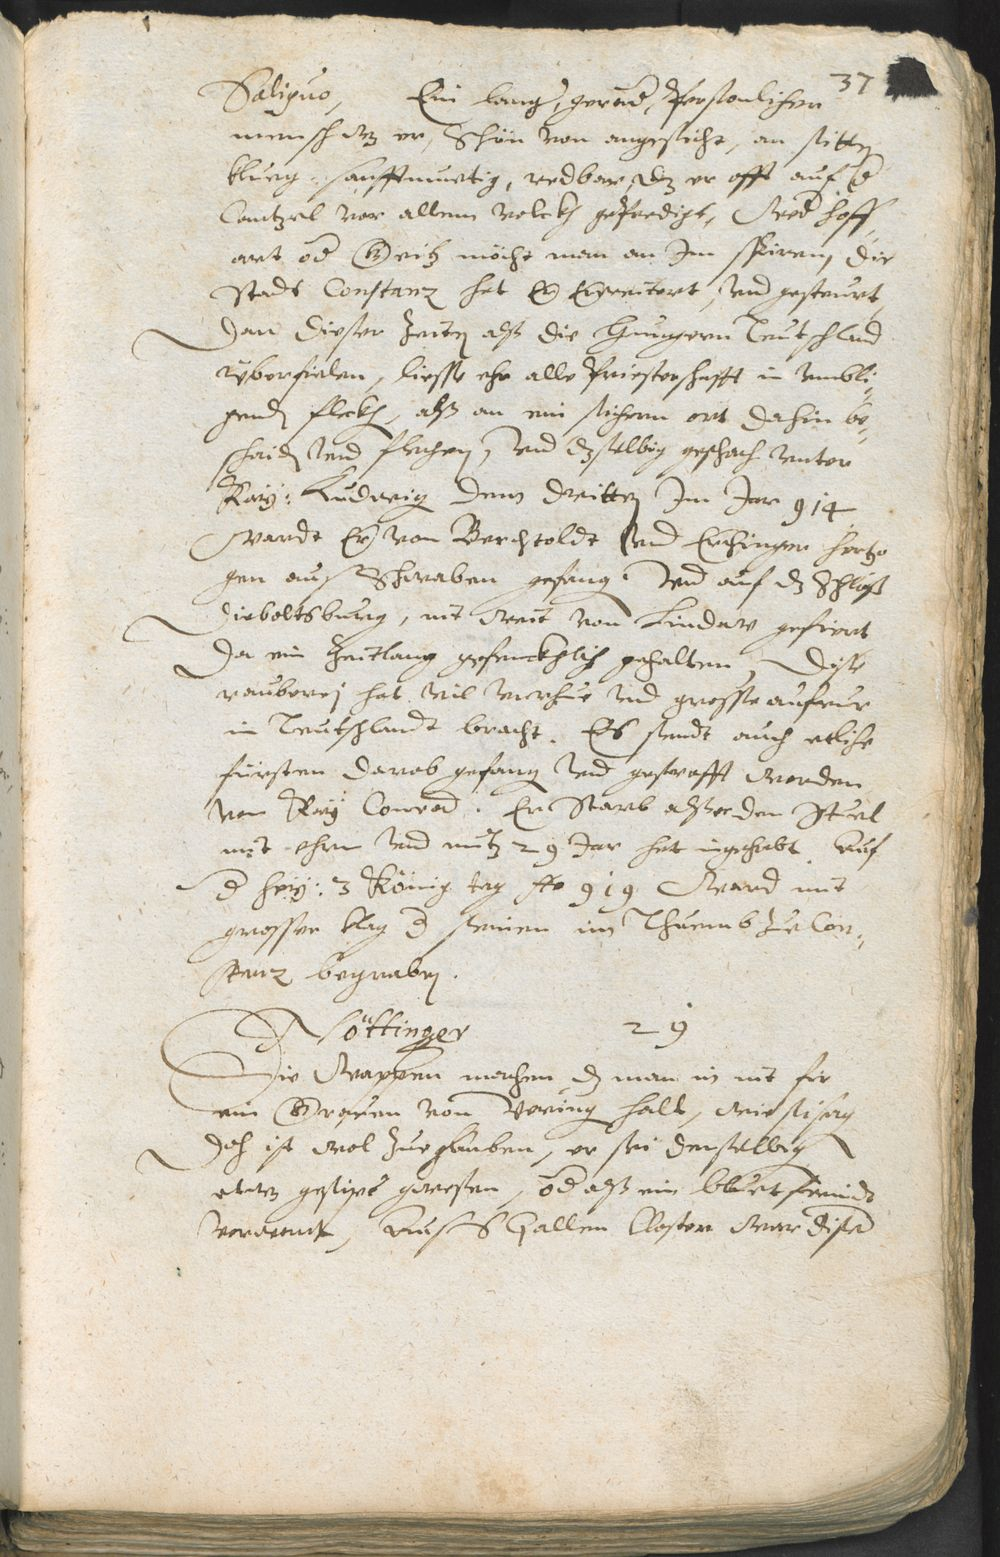 37
Saliguo, Ein lang, gerad, Persönlicher
mensch wz er, Schön von angesicht, an sitten
klueg, sanfftmuetig, redbar, dz er offt auf d
Cantzel vor allem volckh geprediget, Wed hoff,,
art od Geitz möcht man an Im spüren, die
Stadt Constanz hat Er erweitert, und gesteurt,
Dan dieser Zeiten alß die Hungern Teutschland
überfielen, liesse ehr alle Priesterschafft in umbli,,
genden fleckh, alß an ein sichern ort dahin be,,
schaiden und flechen, und dasselbig geschach unter
Kay: Ludwig dem dritten Im Jar 914
Wardt Er von Berchtoldt und Erchinger hertzo
gen aus Schwaben gefangen und auf dz Schloß
Dieboltsburg, nit weit von Lindaw gefiert
Da ein Zeitlang gefenckhlich gehalten, Dise
rauberei hat vil unrhue und grosse aufrur
in Teutschlandt bracht. Es sendt auch etliche
fürsten darob gefangen und gestrafft worden
von Kay Conrad. Er Starb alß er den Stuel
mit ehren und nutz 29 Jar hat ingehabt. Auf
d hey: 3 König tag Ao 919 Ward mit
grosser klag d seinen im Thuemb Zu Con,,
stanz begraben.
Nöttinger 29
Die Wappen machen dz man in nit für
ein Graven von Vering halt, wie
Doch ist wol zue glauben, er sei derselbig
etwz gesipt gewesen, od alß ein bluet freindt
verwent, Auß S Gallen Closter war diser